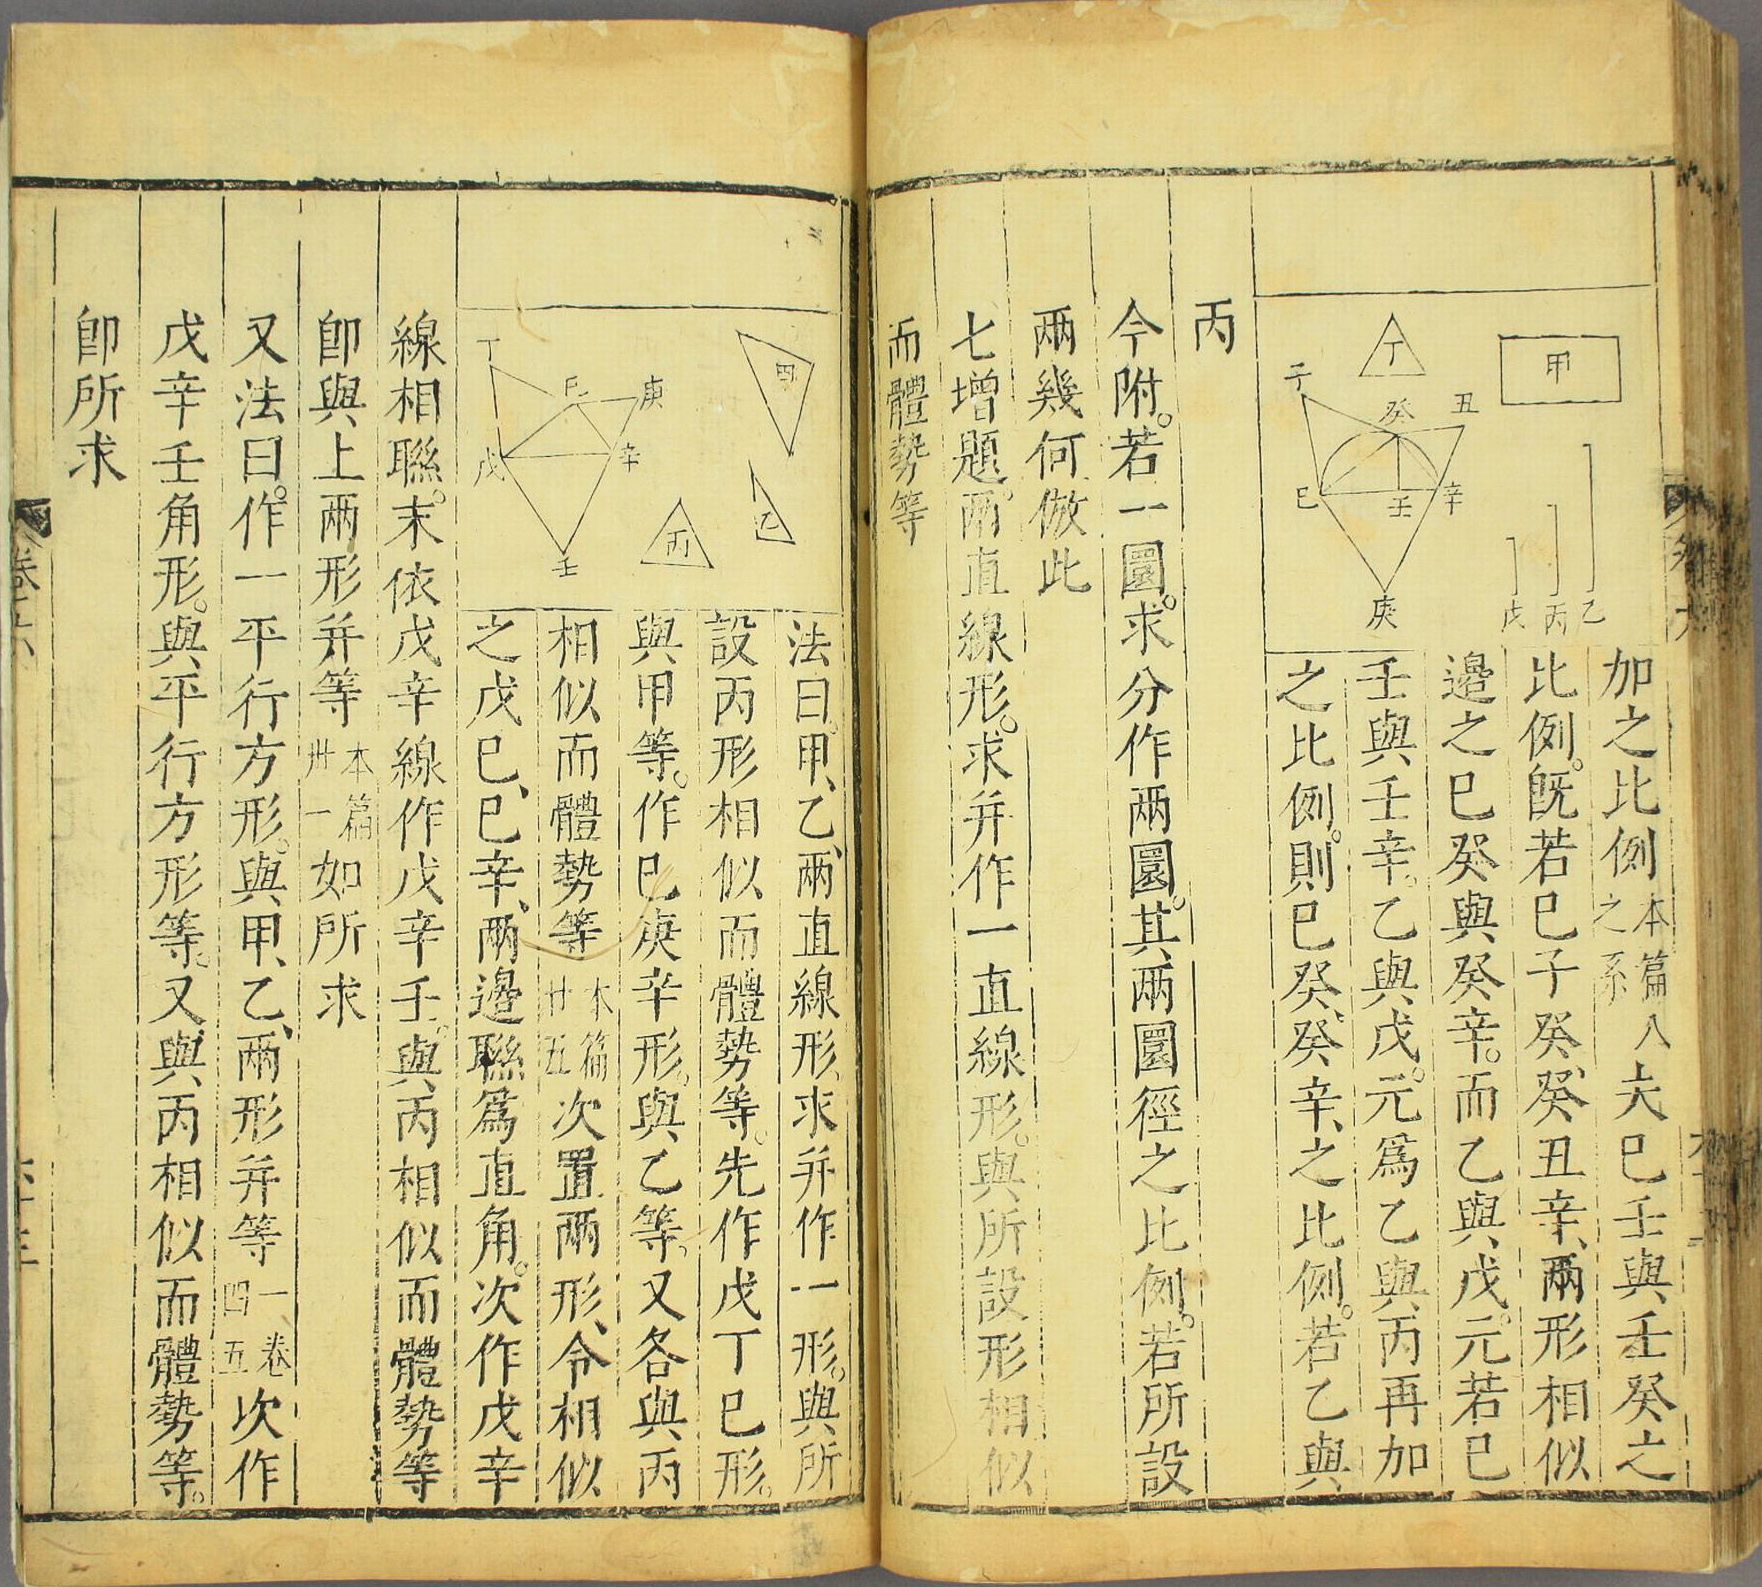 甲
丁
子
癸
丑
巳
壬
辛
庚
乙
丙
戊
加之比例本篇八之系夫巳壬與壬癸之
比例。旣若巳子癸、癸丑辛、兩形相似
邊之巳癸與癸辛。而乙與戊。元若巳
壬與壬辛。乙與戊。元爲乙與丙再加
之比例。則巳癸、癸辛、之比例。若乙與
丙
今附。若一圜。求分作兩圜。其兩圜徑之比例。若所設
兩幾何倣此
七增題。兩直線形。求并作一直線形。與所設形相似
而體勢等
甲
乙
丙
丁
巳
庚
戊
辛
壬
法曰。甲、乙、兩直線形、求并作一形。與所
設丙形相似而體勢等。先作戊丁巳形。
與甲等。作巳庚辛形。與乙等。又各與丙
相似而體勢等本篇廿五次置兩形、令相似
之戊巳、巳辛、兩邊聯爲直角。次作戊辛
線相聯。末依戊辛線作戊辛壬。與丙相似而體勢等
卽與上兩形并等本篇卅一如所求
又法曰。作一平行方形。與甲、乙、兩形并等一卷四五次作
戊辛壬角形。與平行方形等。又與丙相似而體勢等。
卽所求
卷六